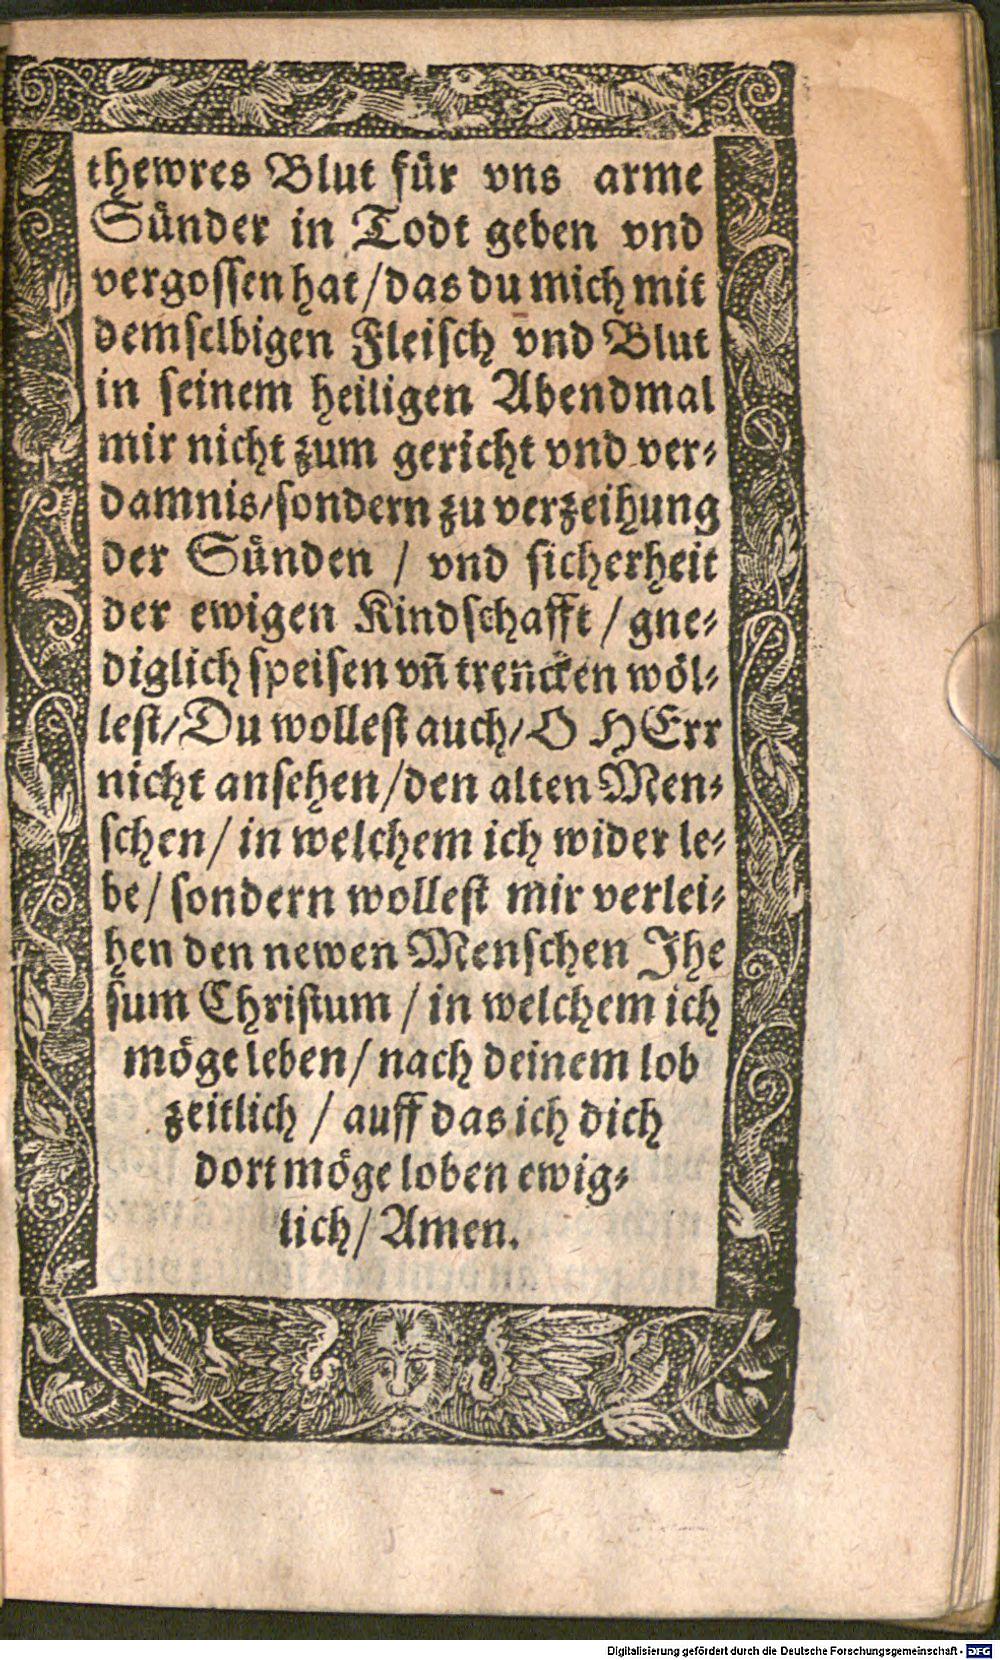 thewres Blut für vns arme
Sünder in Todt geben vnd
vergossen hat/das du mich mit
demselbigen Fleisch vnd Blut
in seinem heiligen Abendmal
mir nicht zum gericht vnd ver-
damnis/sondern zu verzeihung
der Sünden / vnd sicherheit
der ewigen Kindschafft / gne-
diglich speisen vñ trencken wöl-
lest/Du wollest auch/O HErr
nicht ansehen/den alten Men-
schen/ in welchem ich wider le-
be/ sondern wollest mir verlei-
hen den newen Menschen Jhe
sum Christum / in welchem ich
möge leben/ nach deinem lob
zeitlich / auff das ich dich
dort möge loben ewig-
lich/ Amen.
Digitalisierung gefördert durch die Deutsche Forschungsgemeinschaft - DFG